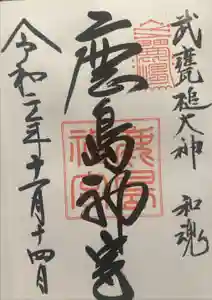 武甕槌大神 和魂
鹿島神宮
令和二年十一月十四日